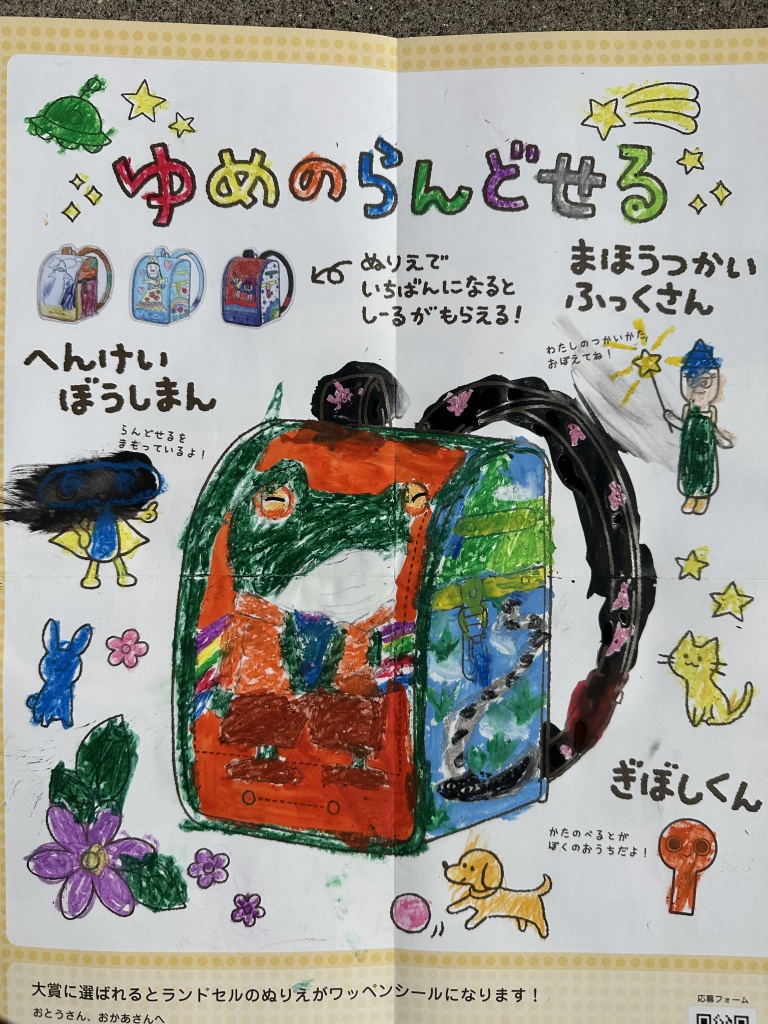 ゆめのらんどせる
ぬりえで
いちばんになると
しーるがもらえる!
まほうつかい
ふっくさん
わたしのつかいかた、
おぼえてね!
へんけい
ぼうしまん
らんどせるを
まもっているよ!
ぎぼしくん
かたのべるとが
ぼくのおうちだよ!
大賞に選ばれるとランドセルのぬりえがワッペンシールになります!
おとうさん、おかあさんへ
応募フォーム